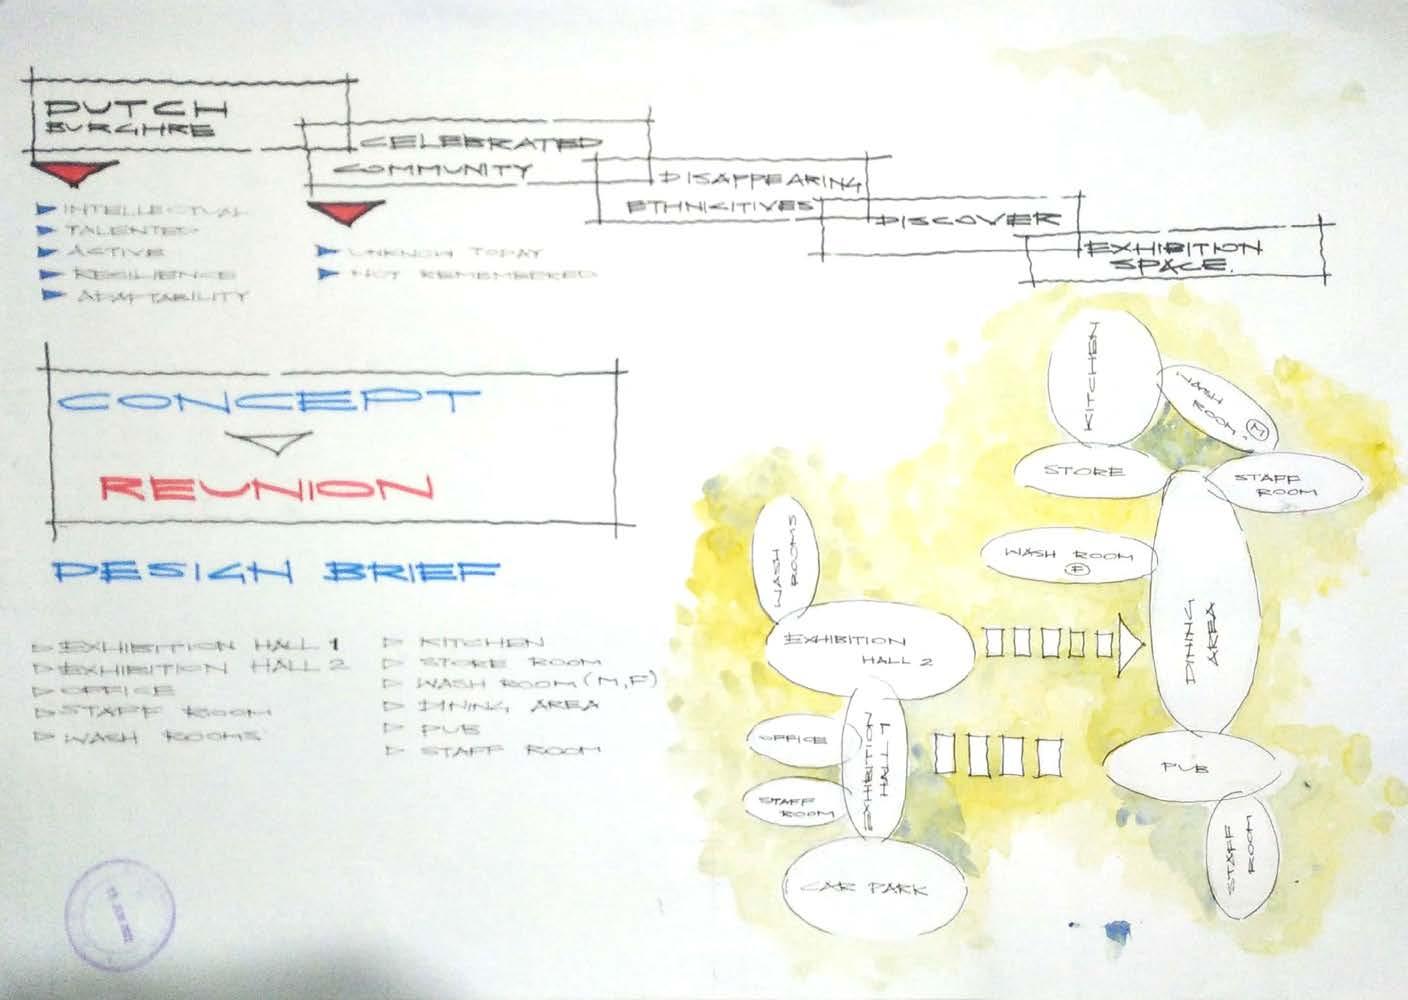 DUTCH
BURGHRE
CELEBRATED
COMMUNITY
DISAPPEARING
ETHNICITIVES
DISCOVER
EXHIBITION
SPACE.
INTELLECTUAL
TALENTED
ACTIVE
RESILIENCE
ADAPTABILITY
UNKNOW TODAY
NOT REMEMBERED
CONCEPT
REUNION
DESIGN BRIEF
EXHIBITION HALL 1
EXHIBITION HALL 2
OFFICE
STAFF ROOM
WASH ROOMS
KITCHEN
STORE ROOM
WASH ROOM (M,F)
DINING AREA
PUB
STAFF ROOM
KITCHEN
WASH
ROOM. M
STORE
STAFF
ROOM
WASH ROOM
F
WASH
ROOMS
EXHIBITION
HALL 2
DINING
AREA
OFFICE
EXHIBITION
HALL 1
STAFF
ROOM
PUB
STAFF
ROOM
CAR PARK